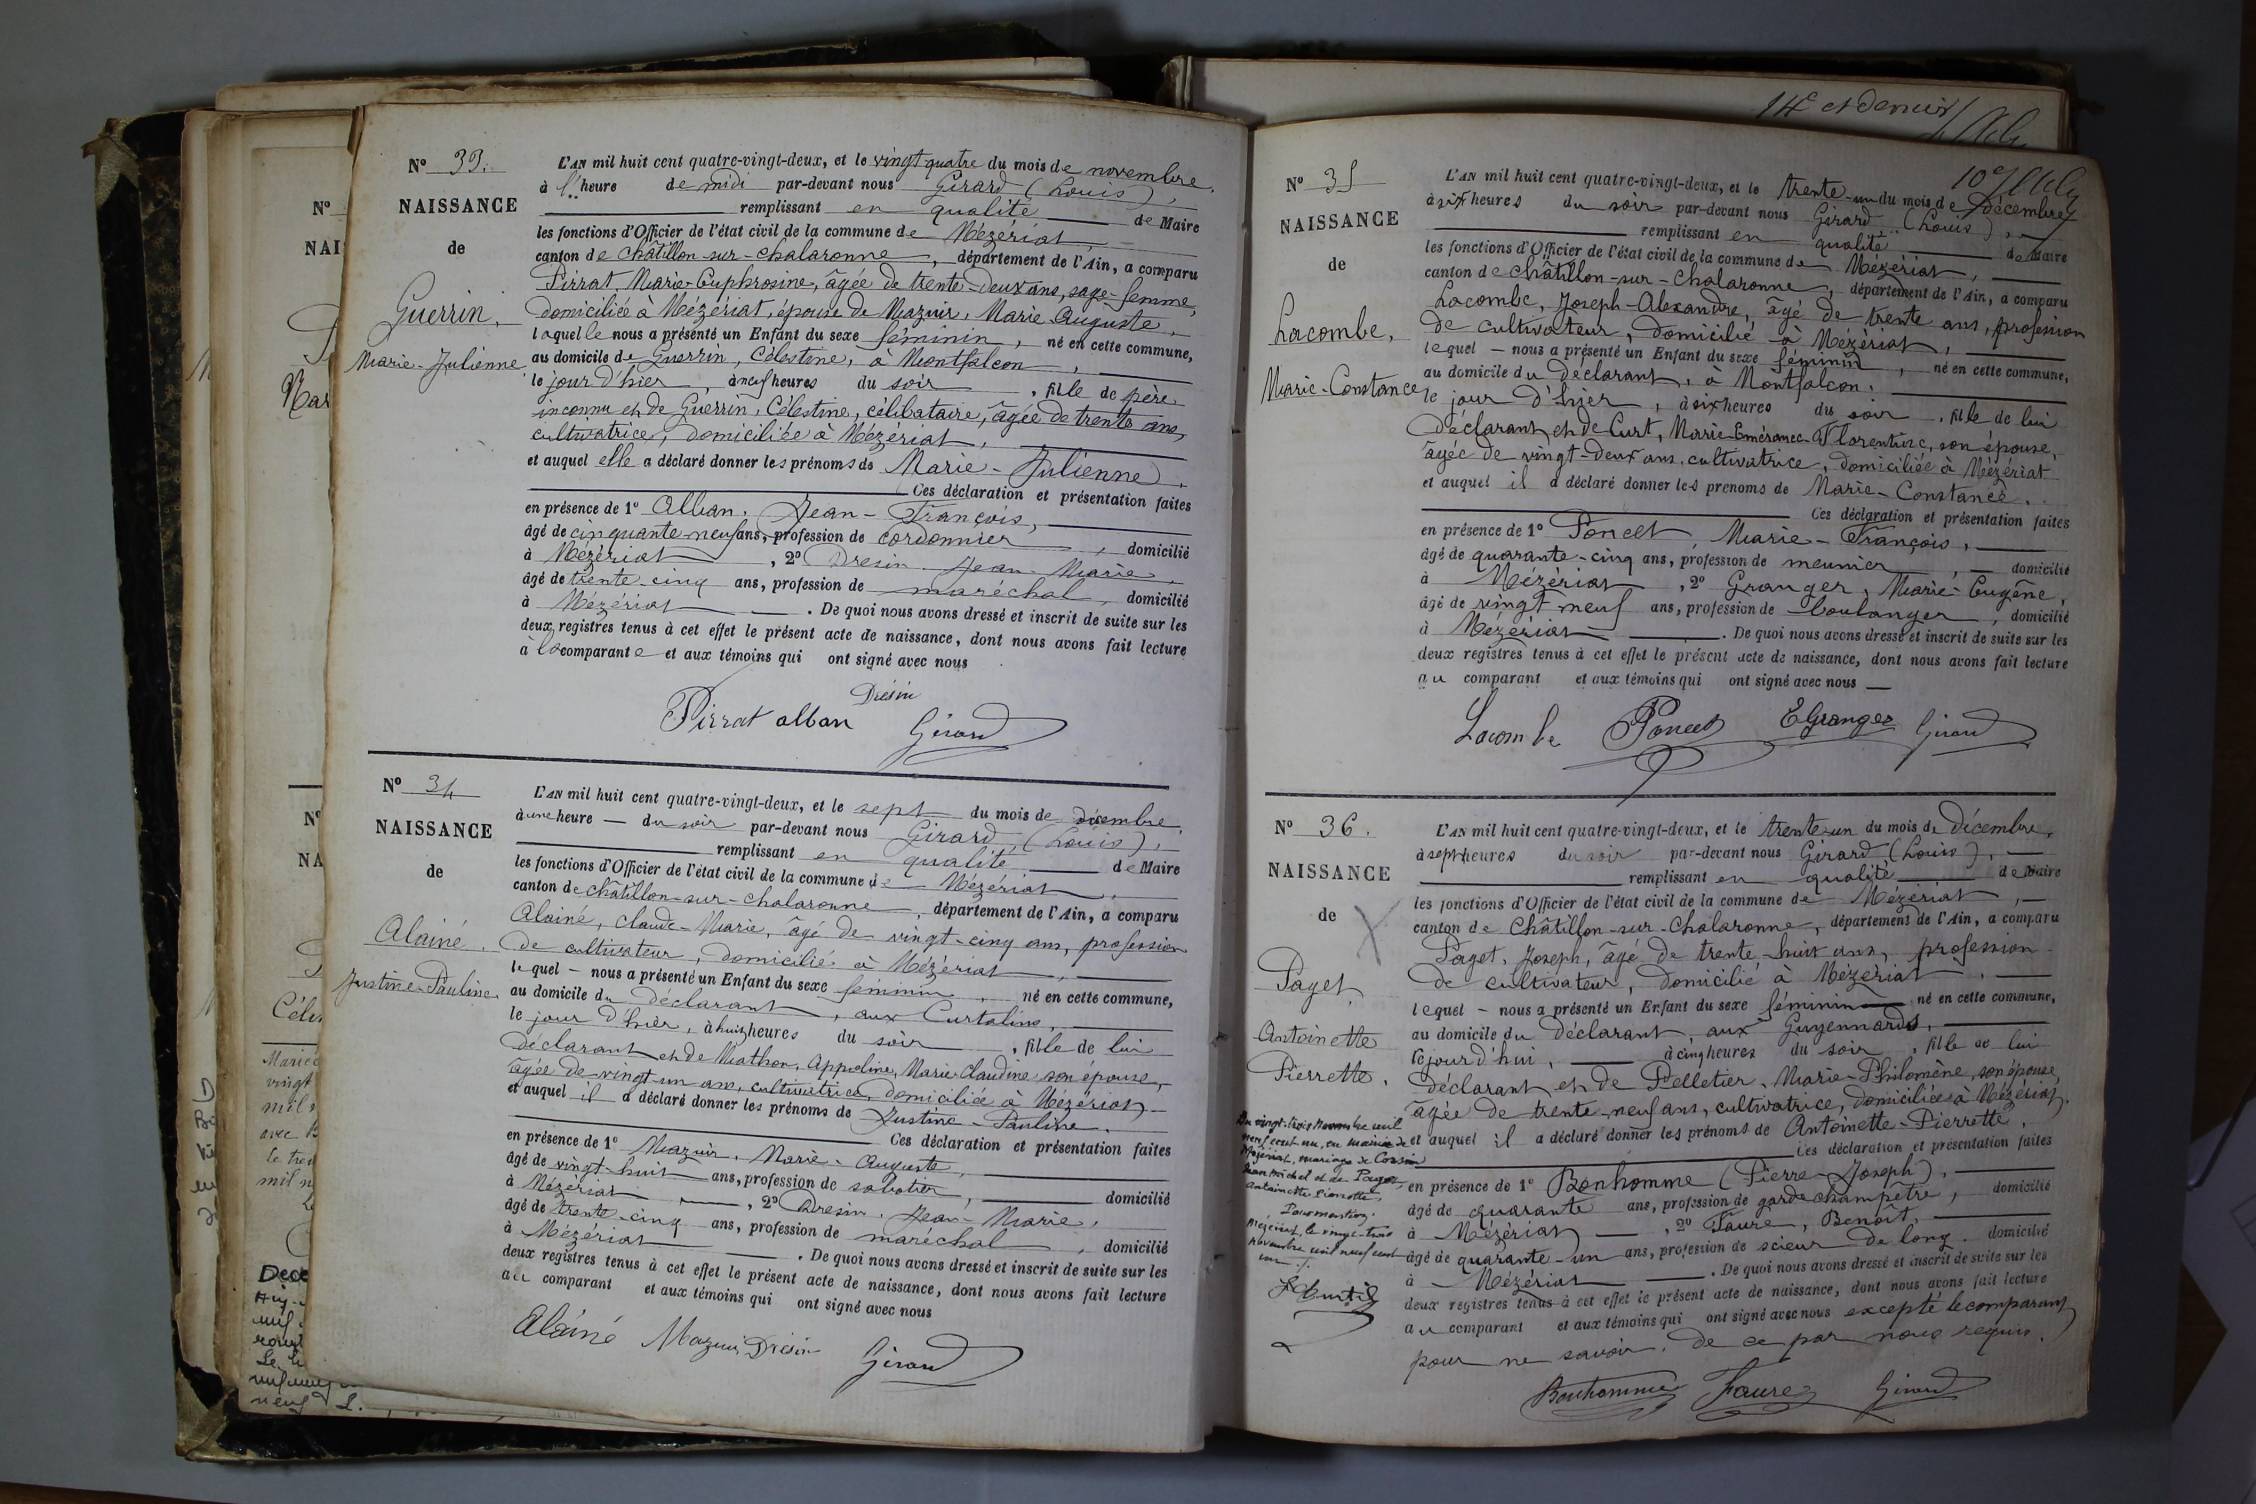 N° 33.
NAISSANCE
de
Guerrin,
Marie-Julienne
L'AN mil huit cent quatre-vingt-deux, et le vingt quatre du mois de novembre.
à l'heure de midi par-devant nous Girard (Louis),
remplissant en qualité de Maire
les fonctions d'Officier de l'état civil de la commune de Mézériat,
canton de Châtillon-sur-Chalaronne, département de l'Ain, a comparu
Pirrat, Marie-Euphrosine, âgée de trente-deux ans, sage-femme,
domiciliée à Mézériat, épouse de Mazuir, Marie Auguste,
laquelle nous a présenté un Enfant du sexe féminin, né en cette commune,
au domicile de Guerrin, Célestine, à Montfalcon,
le jour d'hier, à neuf heures du soir, fille de père
inconnu et de Guerrin, Célestine, célibataire, âgée de trente ans,
cultivatrice, domiciliée à Mézériat,
et auquel elle a déclaré donner les prénoms de Marie-Julienne.
Ces déclaration et présentation faites
en présence de 1° Alban, Jean-François,
âgé de cinquante neuf ans, profession de cordonnier, domicilié
à Mézériat, 2° Dresin Jean-Marie,
âgé de trente-cinq ans, profession de maréchal, domicilié
à Mézériat. De quoi nous avons dressé et inscrit de suite sur les
deux registres tenus à cet effet le présent acte de naissance, dont nous avons fait lecture
à la comparante et aux témoins qui ont signé avec nous
Pirrat alban Drésin Girard
N° 34
NAISSANCE
de
Alainé.
Justine-Pauline
L'AN mil huit cent quatre-vingt-deux, et le sept du mois de décembre,
à une heure du soir par-devant nous Girard, (Louis),
remplissant en qualité de Maire
les fonctions d'Officier de l'état civil de la commune de Mézériat,
canton de Châtillon-sur-Chalaronne, département de l'Ain, a comparu
Alainé, Claude-Marie, âgé de vingt-cinq ans, profession
de cultivateur, domicilié à Mézériat,
lequel - nous a présenté un Enfant du sexe féminin, né en cette commune,
au domicile du déclarant, aux Curtalins,
le jour d'hier, à huit heures du soir, fille de lui
déclarant et de Mathon, Appoline, Marie Claudine son épouse,
âgée de vingt-un ans, cultivatrice, domiciliée à Mézériat,
et auquel il a déclaré donner les prénoms de Justine-Pauline.
Ces déclaration et présentation faites
en présence de 1° Mazuir, Marie-Auguste,
âgé de vingt-huit ans, profession de sabotier, domicilié
à Mézériat, 2° Dresin, Jean-Marie,
âgé de trente-cinq ans, profession de maréchal, domicilié
à Mézériat. De quoi nous avons dressé et inscrit de suite sur les
deux registres tenus à cet effet le présent acte de naissance, dont nous avons fait lecture
au comparant et aux témoins qui ont signé avec nous
Alainé Mazuir Drésin Girard
14e et dernier
10e
N° 35
NAISSANCE
de
Lacombe,
Marie-Constance
L'AN mil huit cent quatre-vingt-deux, et le trente-un du mois de décembre
à six heures du soir par-devant nous Girard, (Louis),
remplissant en qualité de Maire
les fonctions d'Officier de l'état civil de la commune de Mézériat,
canton de Châtillon-sur-Chalaronne, département de l'Ain, a comparu
Lacombe, Joseph-Alexandre, âgé de trente ans, profession
de cultivateur, domicilié à Mézériat,
lequel - nous a présenté un Enfant du sexe féminin, né en cette commune,
au domicile du déclarant, à Montfalcon.
le jour d'hier, à six heures du soir, fille de lui
déclarant et de Curt, Marie-Emérance Florentine, son épouse,
âgée de vingt-deux ans, cultivatrice, domiciliée à Mézériat
et auquel il a déclaré donner les prénoms de Marie-Constance.
Ces déclaration et présentation faites
en présence de 1° Poncet, Marie-François,
âgé de quarante-cinq ans, profession de meunier, domicilié
à Mézériat, 2° Granger, Marie-Eugène,
âgé de vingt neuf ans, profession de boulanger, domicilié
à Mézériat. De quoi nous avons dressé et inscrit de suite sur les
deux registres tenus à cet effet le présent acte de naissance, dont nous avons fait lecture
au comparant et aux témoins qui ont signé avec nous
Lacombe Poncet EGranger Girard
N° 36.
NAISSANCE
de
Paget,
Antoinette
Pierrette.
Du vingt-trois Novembre mil
neuf cent un, en mairie de
Mézériat, mariage de Corsin
Jean Michel et de Paget
Antoinette Pierrette.
Pour mention,
Mézériat, le vingt-trois
novembre mil neuf cent
un
L'AN mil huit cent quatre-vingt-deux, et le trente-un du mois de décembre,
à sept heures du soir par-devant nous Girard (Louis),
remplissant en qualité de Maire
les fonctions d'Officier de l'état civil de la commune de Mézériat,
canton de Châtillon-sur-Chalaronne, département de l'Ain, a comparu
Paget, Joseph, âgé de trente-huit ans, profession
de cultivateur, domicilié à Mézériat,
lequel - nous a présenté un Enfant du sexe féminin né en cette commune,
au domicile du déclarant, aux Guyennards,
le jour d'hui, à cinq heures du soir, fille de lui
déclarant et de Pelletier, Marie-Philomène, son épouse,
âgée de trente-neuf ans, cultivatrice, domiciliée à Mézériat.
et auquel il a déclaré donner les prénoms de Antoinette-Pierrette.
Ces déclaration et présentation faites
en présence de 1° Bonhomme (Pierre-Joseph),
âgé de quarante ans, profession de garde champêtre, domicilié
à Mézériat, 2° Faure, Benoît,
âgé de quarante-un ans, profession de scieur de long. domicilié
à Mézériat. De quoi nous avons dressé et inscrit de suite sur les
deux registres tenus à cet effet le présent acte de naissance, dont nous avons fait lecture
au comparant et aux témoins qui ont signé avec nous excepté le comparant
pour ne savoir, de ce par nous requis.
Bonhomme Faure Girard